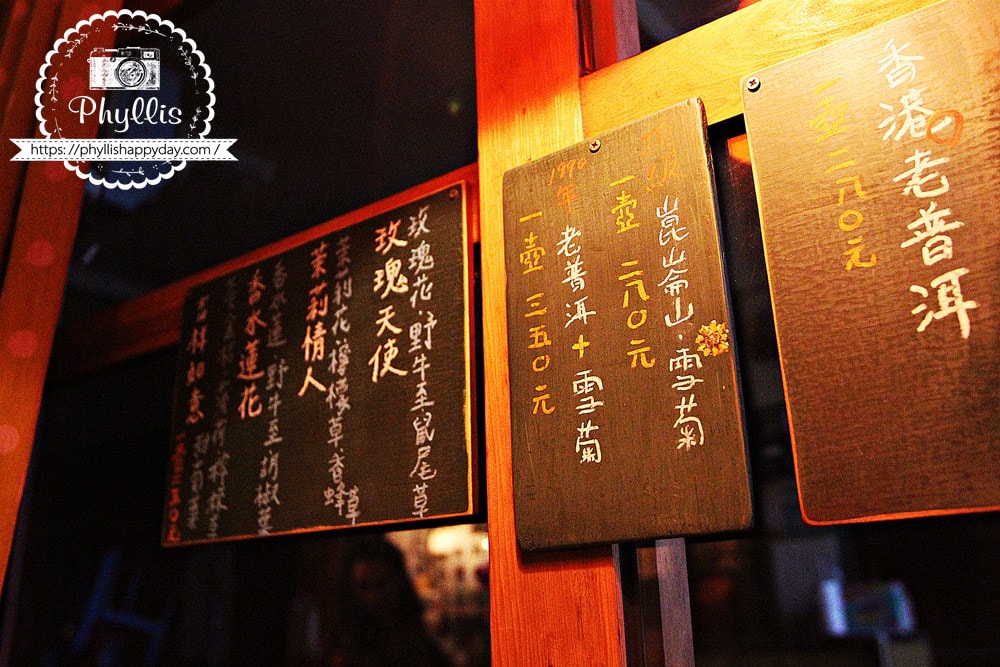 Phyllis
https://phyllishappyday.com /
香港老普洱
一壺二八0元
崑崙山·雪菊
一壺 二八0元
1990年
老普洱+雪菊
一壺 三五0元
玫瑰花·野牛至鼠尾草
玫瑰天使
茉莉花·檸檬草·香蜂草
茉莉情人
香水蓮·野牛至·胡椒葉
香水蓮花
吉祥如意